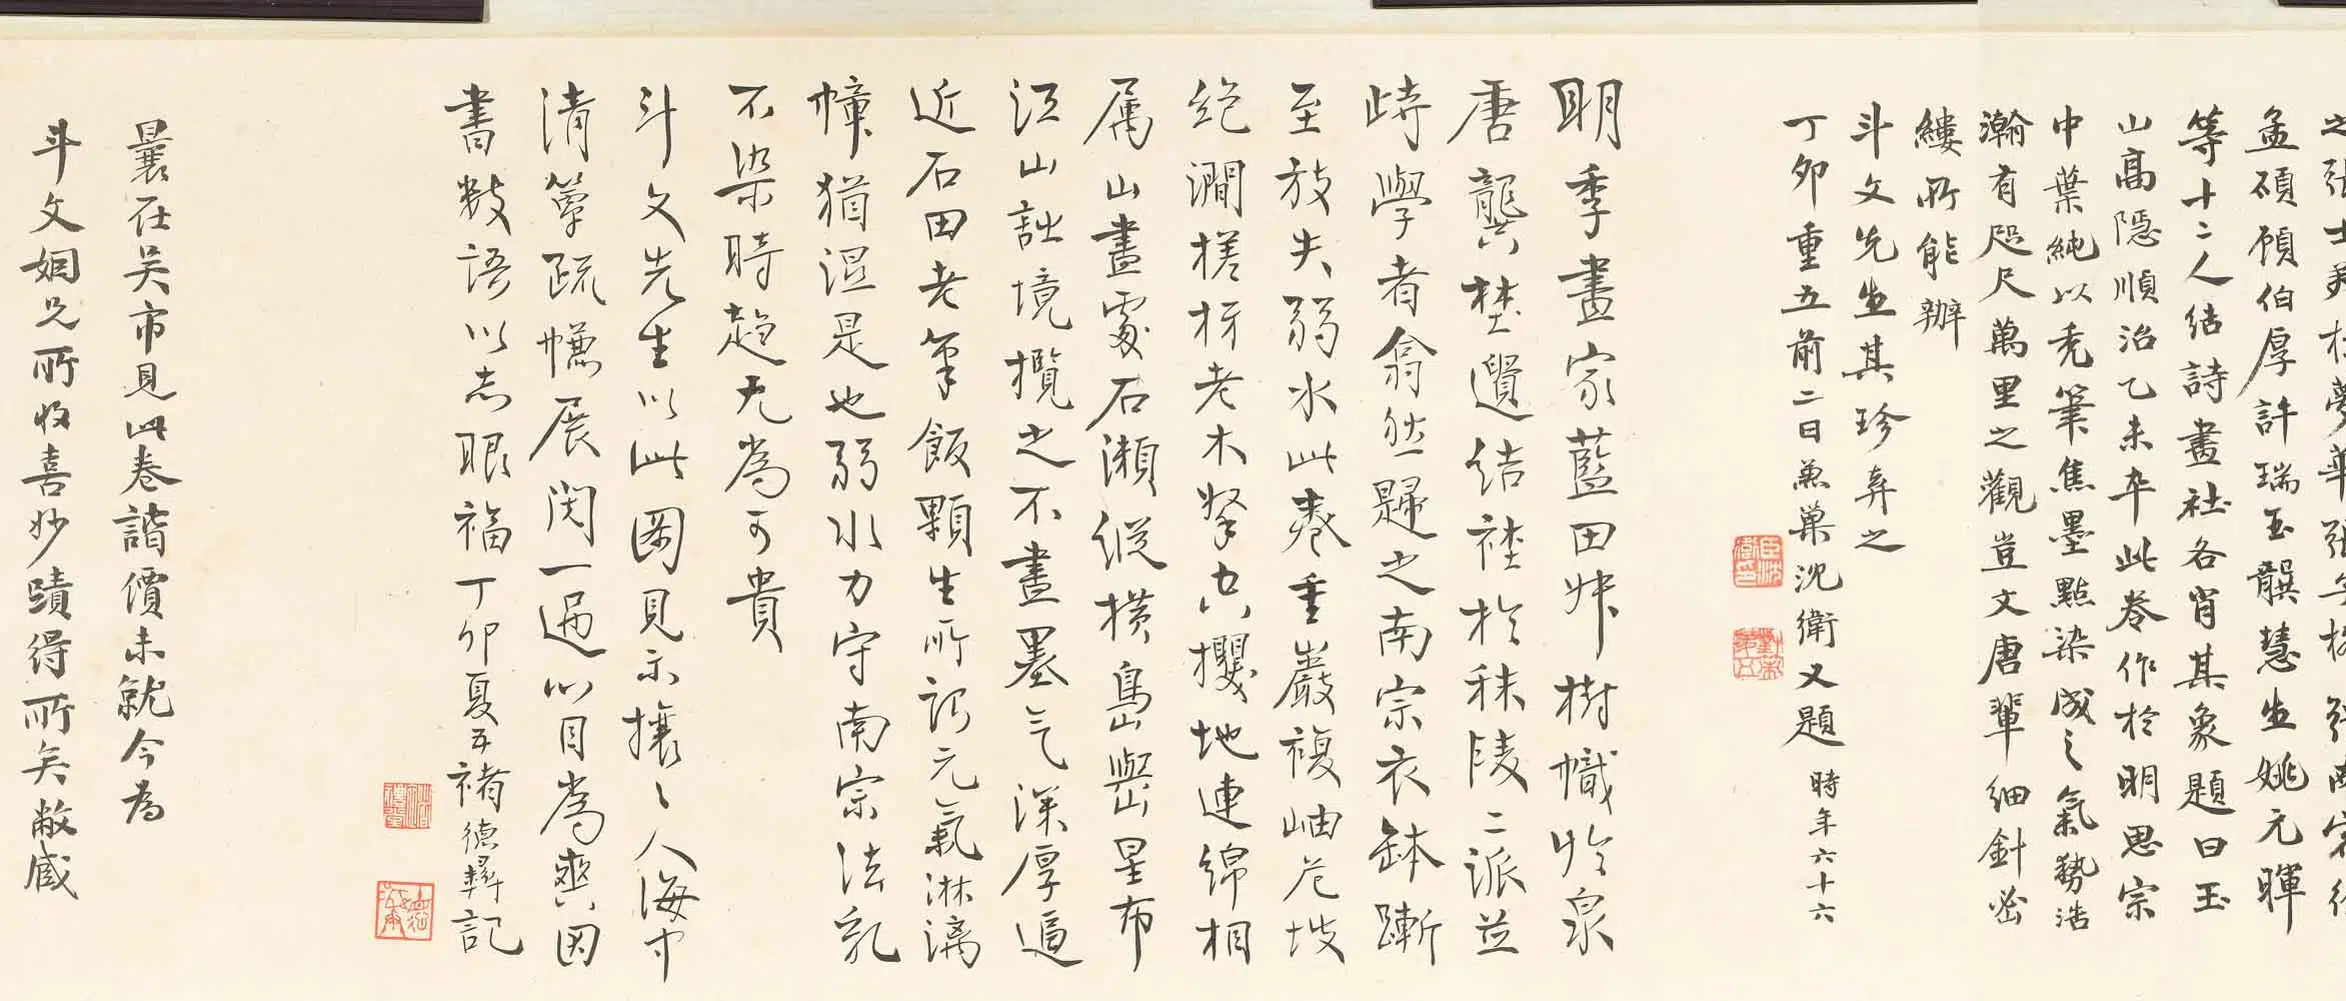 孟碩顧伯厚許瑞玉髏慧生姚元暉
等十二人結詩畫社各肖其象題曰玉
山高隱順治乙未卒此卷作於明思宗
中葉純以禿筆焦墨點染成之氣勢浩
瀚有咫尺萬里之觀豈文唐輩細針密
縷所能辦
斗文先生其珍弆之
丁卯重五前二日兼巢沈衛又題 時年六十六
明季畫家藍田叔樹幟於泉
唐龔埜遺結社於秣陵二派並
峙學者翕然歸之南宗衣鉢蹔
至放失弱水此卷重巖複岫危坡
絕澗槎枒老木拏空攫地連綿相
屬山盡處石瀨縱橫島嶼星布
江山詭境攬之不盡墨气深厚逼
近石田老筆飯顆生所謂元氣淋漓
幛猶濕是也弱水力守南宗法乳
不染時趨尤為可貴
斗文先生以此圖見示攘〻人海中
清簟疏㡘展閱一過心目為爽因
書數語以志眼福丁卯夏五褚德彝記
曩在吳市見此卷諧價未就今為
斗文姻兄所收喜妙蹟得所矣敝藏